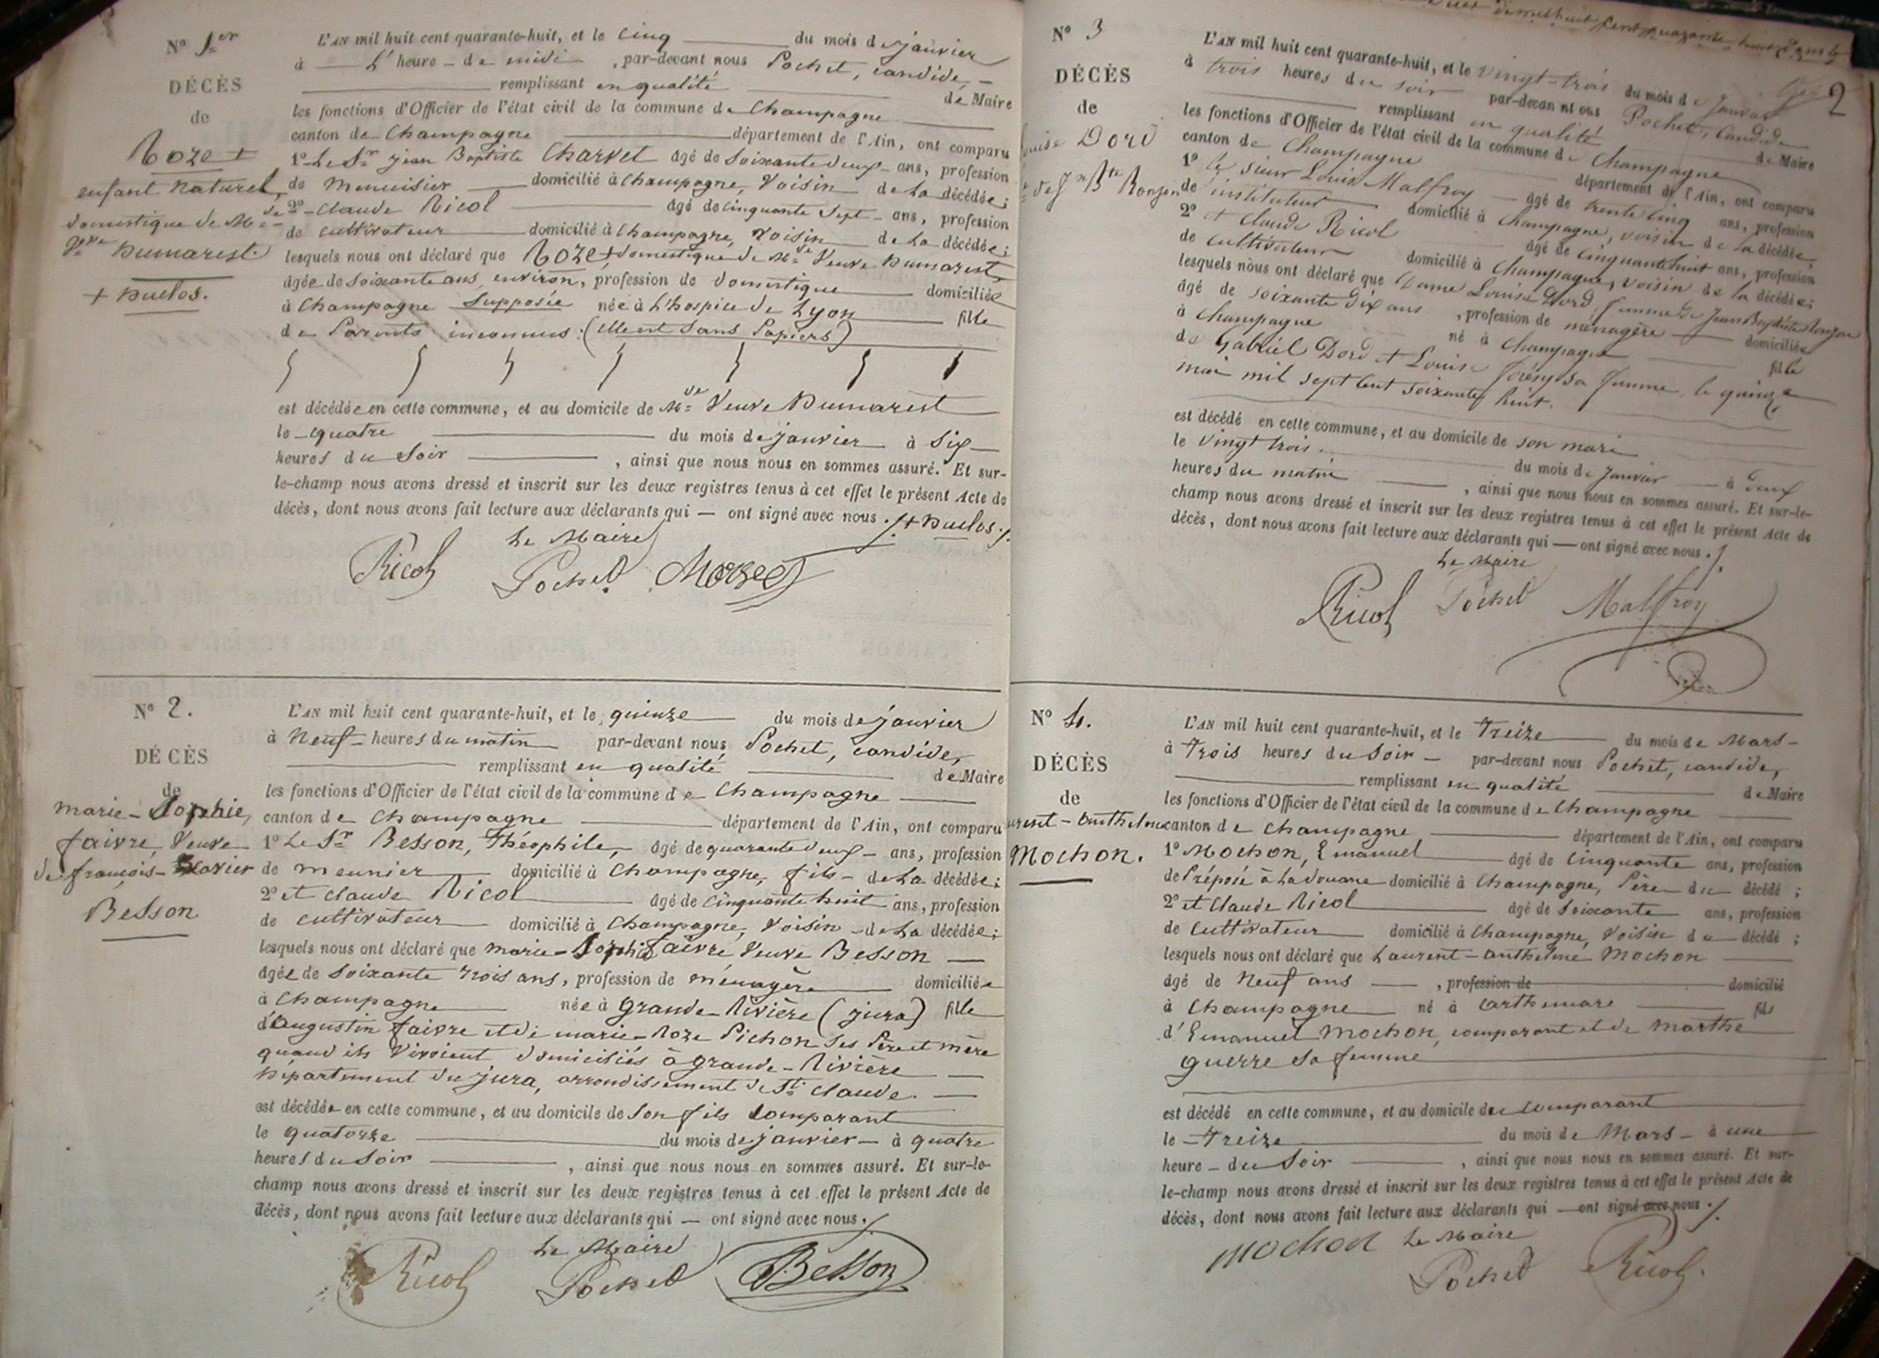 N° 1er
DÉCÈS
de
Roze +
enfant naturel,
domestique de Mde
Vve Dumarest.
+ Duclos.
L'AN mil huit cent quarante-huit, et le cinq du mois de janvier
à L' heure de midi, par-devant nous Pochet, candide,
remplissant en qualité de Maire
les fonctions d'Officier de l'état civil de la commune de Champagne
canton de Champagne département de l'Ain, ont comparu
1° Le Sr jean Baptiste Charvet âgé de soixante deux ans, profession
de menuisier domicilié à Champagne, Voisin de la décédée;
2° Claude Ricol âgé de cinquante sept ans, profession
de cultivateur domicilié à Champagne, voisin de la décédée;
lesquels nous ont déclaré que Roze + domestique de Mde Veuve Dumarest
âgée de soixante ans environ, profession de domestique domiciliée
à Champagne supposée née à L'hospice de Lyon fille
de Parents inconnus. (Elle est sans Papiers)
est décédée en cette commune, et au domicile de Mde Veuve Dumarest
le quatre du mois de janvier à six
heures du soir, ainsi que nous nous en sommes assuré. Et sur-
le-champ nous avons dressé et inscrit sur les deux registres tenus à cet effet le présent Acte de
décès, dont nous avons fait lecture aux déclarants qui — ont signé avec nous ./. + Duclos ./.
Le Maire
Ricol Pochet
N° 2.
DÉCÈS
de
marie-Sophie,
faivre Veuve
de françois-Xavier
Besson
L'AN mil huit cent quarante-huit, et le quinze du mois de janvier
à Neuf heures du matin par-devant nous Pochet, candide,
remplissant en qualité de Maire
les fonctions d'Officier de l'état civil de la commune de Champagne
canton de Champagne département de l'Ain, ont comparu
1° Le Sr Besson, Théophile, âgé de quarante deux ans, profession
de meunier domicilié à Champagne, fils de la décédée;
2° et claude Ricol âgé de cinquante huit ans, profession
de cultivateur domicilié à Champagne, Voisin de la décédée;
lesquels nous ont déclaré que marie-Sophie faivre Veuve Besson
âgée de soixante trois ans, profession de ménagère domiciliée
à Champagne née à Grande-Rivière (jura) fille
d'augustin faivre et de marie-Roze Pichon ses Père et mère
quand ils vivoient domiciliés à grande-Rivière
Département du jura, arrondissement de St. claude.
est décédée en cette commune, et au domicile de son fils comparant
le quatorze du mois de janvier à quatre
heures du soir, ainsi que nous nous en sommes assuré. Et sur-le-
champ nous avons dressé et inscrit sur les deux registres tenus à cet effet le présent Acte de
décès, dont nous avons fait lecture aux déclarants qui — ont signé avec nous ./.
Le Maire
Ricol Pochet Besson
2
N° 3
DÉCÈS
de
Dord
L'AN mil huit cent quarante-huit, et le vingt-trois du mois de janvier
à trois heures du soir par-devant nous Pochet, Candide
remplissant en qualité de Maire
les fonctions d'Officier de l'état civil de la commune de Champagne
canton de Champagne département de l'Ain, ont comparu
1° Le sieur Louis Malfroy âgé de trente cinq ans, profession
de instituteur domicilié à Champagne, voisin de la décédée;
2° et Claude Ricol âgé de cinquante huit ans, profession
de cultivateur domicilié à Champagne, voisin de la décédée;
lesquels nous ont déclaré que Dame Louise Dord, femme de Jean Baptiste
âgé de soixante dix ans, profession de ménagère domiciliée
à Champagne né à Champagne fille
de Gabriel Dord et Louise sa femme, le quinze
mai mil sept cent soixante huit.
est décédé en cette commune, et au domicile de son mari
le vingt trois du mois de janvier à deux
heures du matin, ainsi que nous nous en sommes assuré. Et sur-le-
champ nous avons dressé et inscrit sur les deux registres tenus à cet effet le présent Acte de
décès, dont nous avons fait lecture aux déclarants qui — ont signé avec nous ./.
Le Maire
Ricol Pochet Malfroy
N° 4.
DÉCÈS
de
urent-anthelme
Mochon.
L'AN mil huit cent quarante-huit, et le treize du mois de Mars
à trois heures du soir par-devant nous Pochet, candide,
remplissant en qualité de Maire
les fonctions d'Officier de l'état civil de la commune de Champagne
canton de Champagne département de l'Ain, ont comparu
1° Mochon, Emanuel âgé de cinquante ans, profession
de Préposé à la douane domicilié à Champagne, Père du décédé;
2° et claude Ricol âgé de soixante ans, profession
de cultivateur domicilié à Champagne, Voisin du décédé;
lesquels nous ont déclaré que Laurent-anthelme Mochon
âgé de neuf ans, profession de domicilié
à Champagne né à arthemare fils
d'Emanuel Mochon, comparant et de marthe
guerre sa femme
est décédé en cette commune, et au domicile du comparant
le treize du mois de Mars à une
heure du soir, ainsi que nous nous en sommes assuré. Et sur-
le-champ nous avons dressé et inscrit sur les deux registres tenus à cet effet le présent Acte de
décès, dont nous avons fait lecture aux déclarants qui — ont signé avec nous ./.
mochon Le Maire
Pochet Ricol